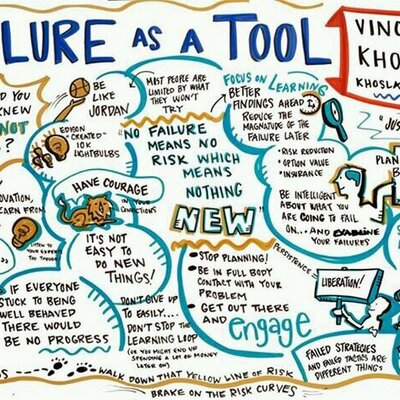 LURE AS A TOOL
VINO
KHO
KHOSLA
"JUS
D YOU
KNEW
NOT
S?
BE
LIKE
JORDAN
EDISON
"CREATED"
10K
LIGHTBULBS
MOST PEOPLE ARE
LIMITED BY WHAT
THEY WON'T
TRY
"NO FAILURE
MEANS NO
RISK WHICH
MEANS
NOTHING
NEW"
FOCUS ON LEARNING
BETTER
FINDINGS AHEAD
REDUCE THE
MAGNITUDE OF THE
FAILURE LATER
• RISK REDUCTION
• OPTION VALUE
• INSURANCE
BE INTELLIGENT
ABOUT WHAT YOU
ARE GOING TO FAIL
ON... AND EXAMINE
YOUR FAILURES
PLAN
B
HAVE COURAGE
IN YOUR
CONVICTIONS
OVATION,
EARN FROM
LISTEN TO
YOUR EXPERTS
TOO THOUGH
IT'S NOT
EASY TO
DO NEW
THINGS!
IF EVERYONE
STUCK TO BEING
WELL BEHAVED
THERE WOULD
BE NO PROGRESS
DON'T GIVE UP
TO EASILY....
DON'T STOP THE
LEARNING LOOP
(OR YOU MIGHT END UP
SPENDING A LOT OF MONEY
LATER ON)
• STOP PLANNING!
• BE IN FULL BODY
CONTACT WITH YOUR
PROBLEM
• GET OUT THERE
AND engage
PERSISTENCE
LIBERATION!
FAILED STRATEGIES
AND FAILED TACTICS ARE
DIFFERENT THINGS
WALK DOWN THAT YELLOW LINE OF RISK
BRAKE ON THE RISK CURVES